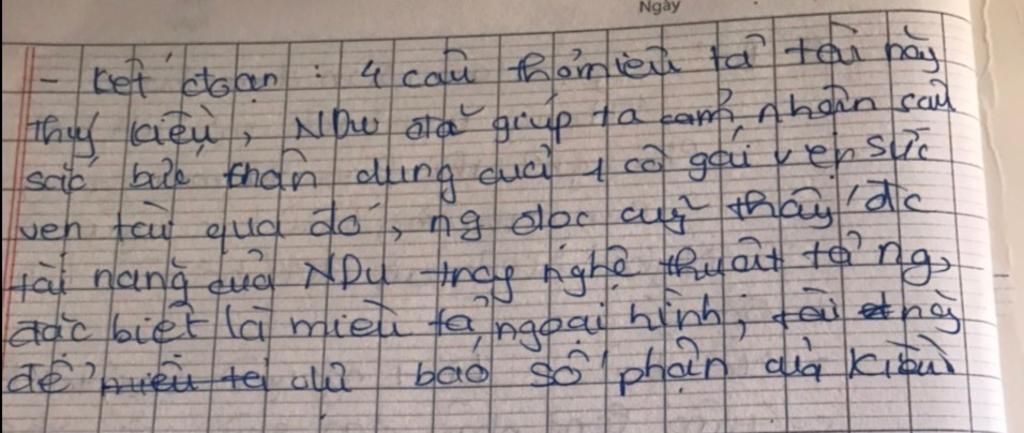 Ngày
- kết đoạn : 4 câu thơ miêu tả tài nảy
Thuý Kiều, NDu đã giúp ta cảm nhận sâu
sắc bức chân dung của 1 cô gái vẹn sắc
vẹn tài qua đó, ng đọc cũng thấy đc
tài năng của NDu trong nghệ thuật tả ng,
đặc biệt là miêu tả ngoại hình, tài
để miêu tả dự báo số phận của Kiều